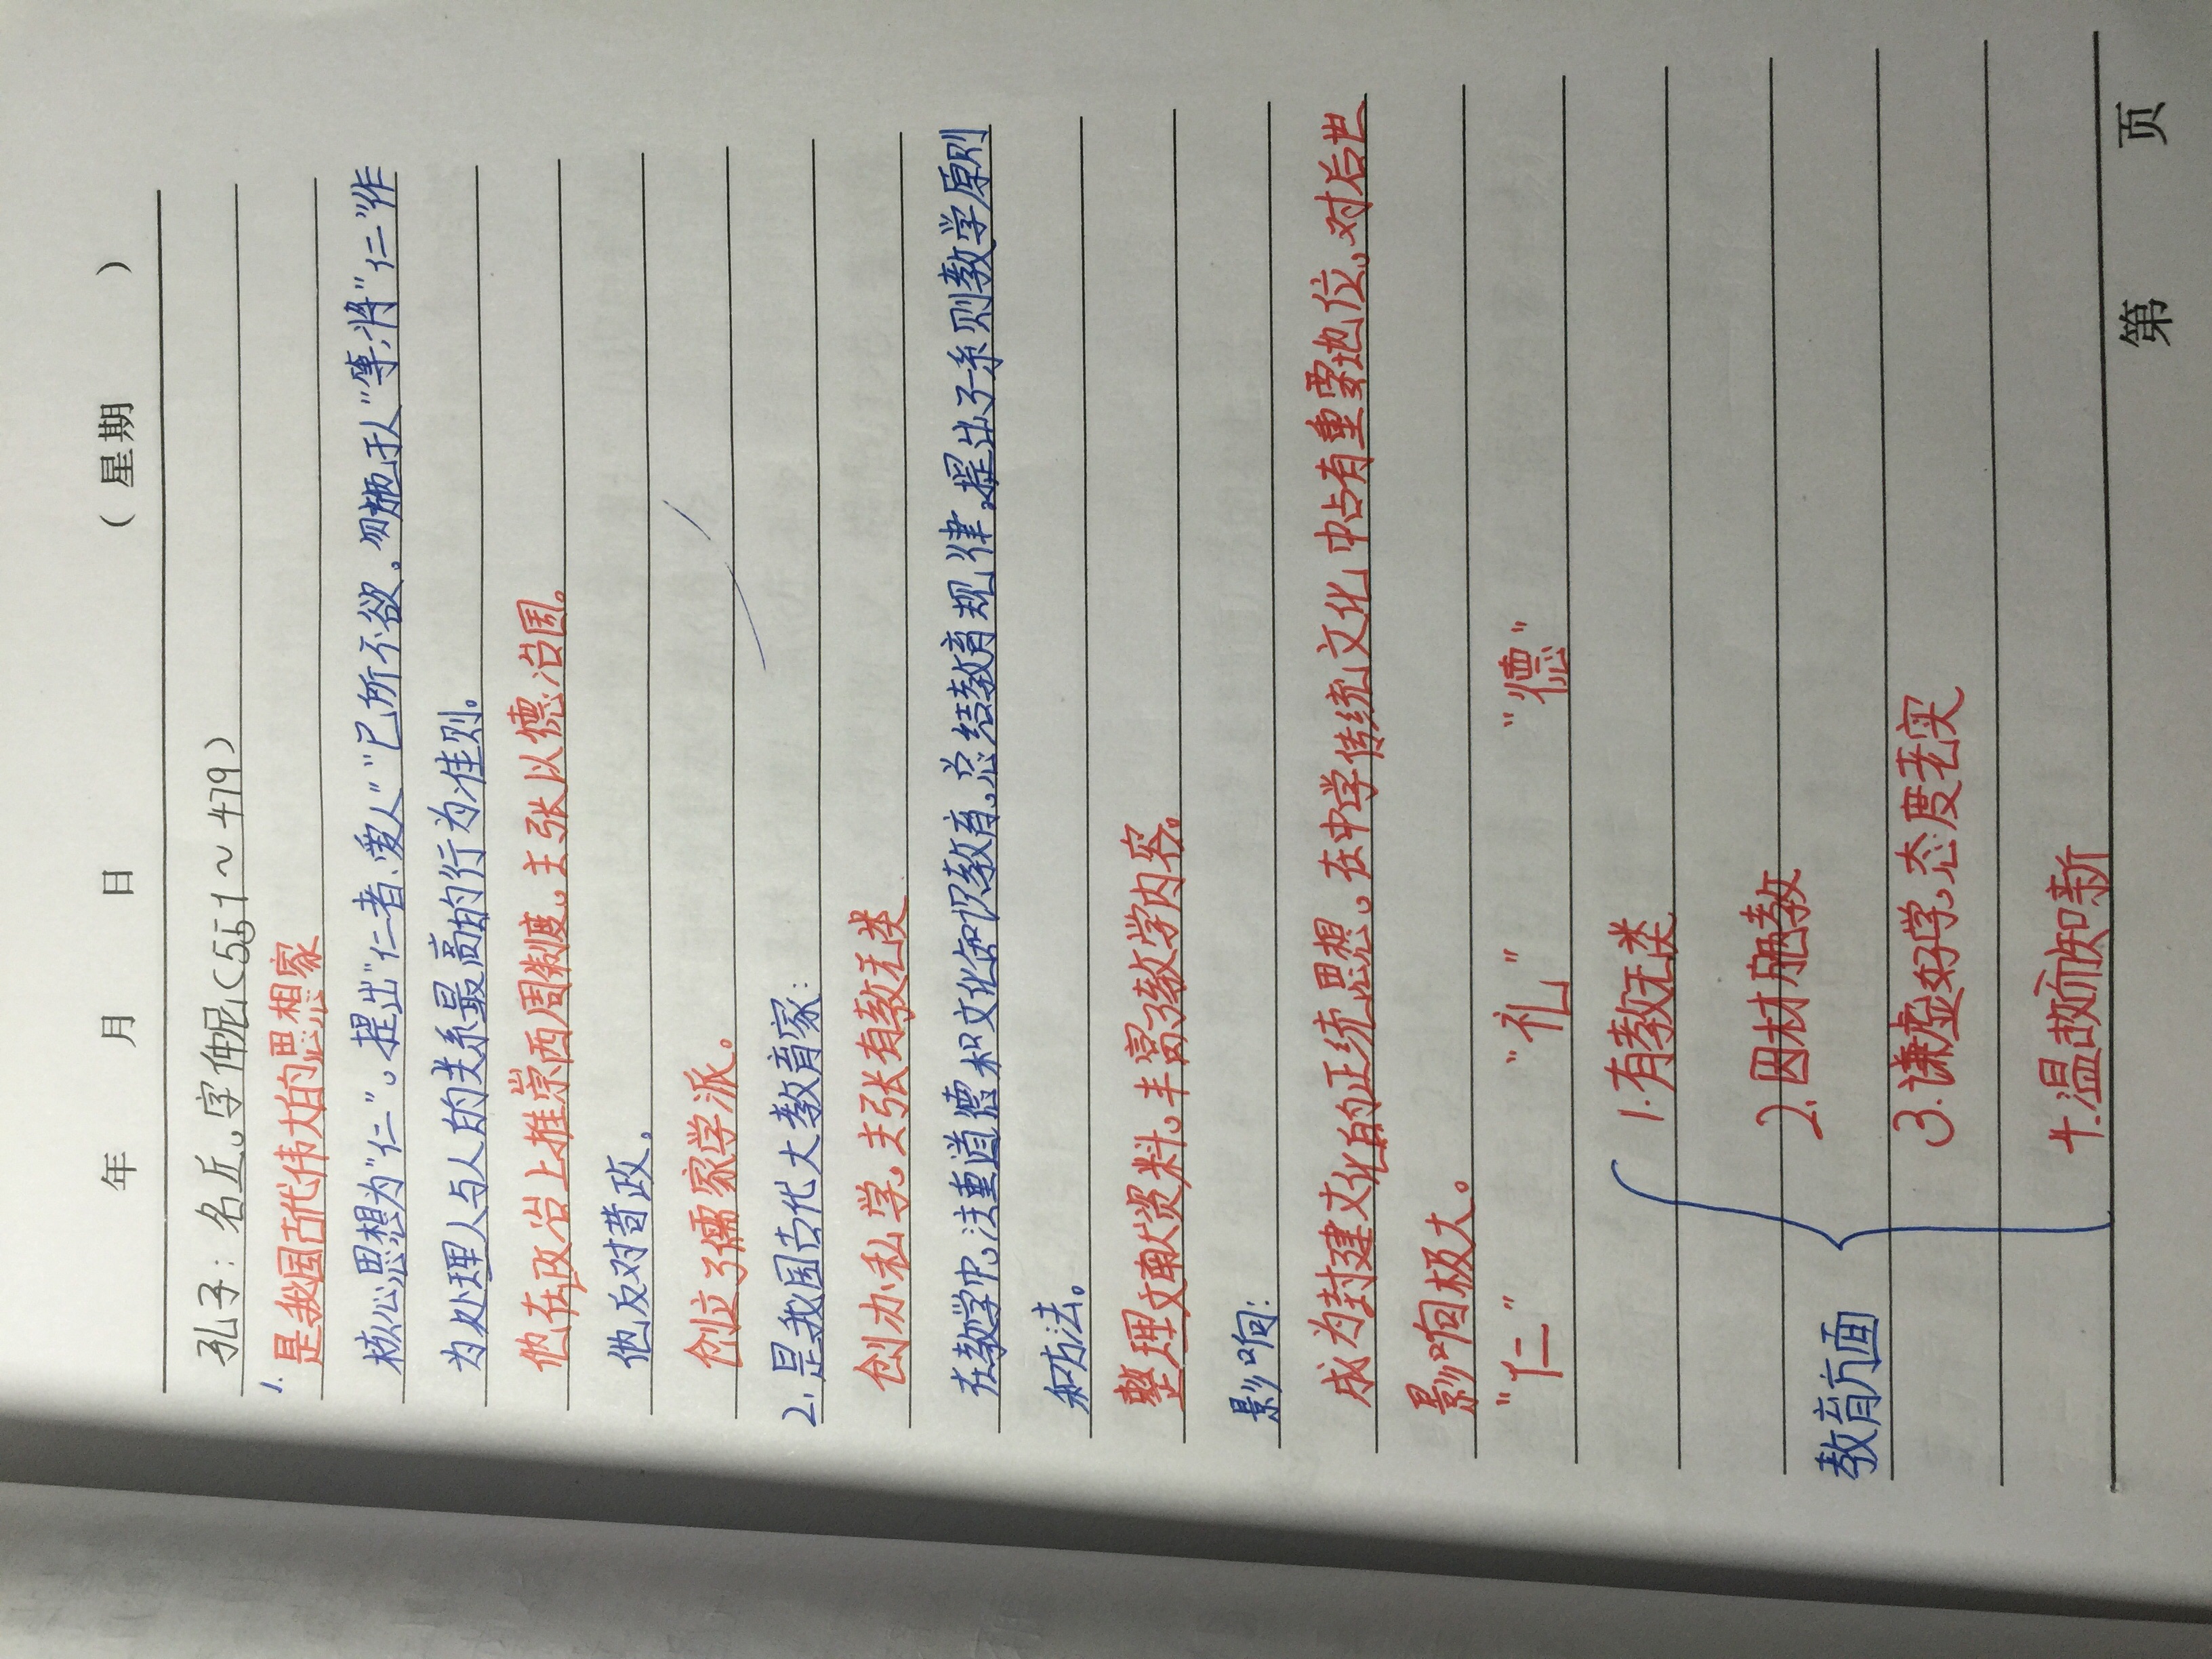 年 月 日 （星期 ）
孔子：名丘。字仲尼(551～479)
1.
是我国古代伟大的思想家
核心思想为“仁”。提出“仁者、爱人”“已所不欲。勿施于人”等,将“仁”作
为处理人与人的关系最高的行为准则。
他在政治上推崇西周制度。主张以德治国。
他反对苛政。
创立了儒家学派。
2.是我国古代大教育家:
创办私学。主张有教无类
在教学中。注重道德和文化知识教育。总结教育规律,提出了一系则教学原则
和方法。
整理文献资料。丰富了教学内容。
影响:
成为封建文化的正统思想。在中学传统文化中占有重要地位。对后世
影响极大。
“仁” “礼” “德”
1.有教无类
2.因材施教
教育方面
3.谦虚好学,态度老实
4.温故而知新
第 页